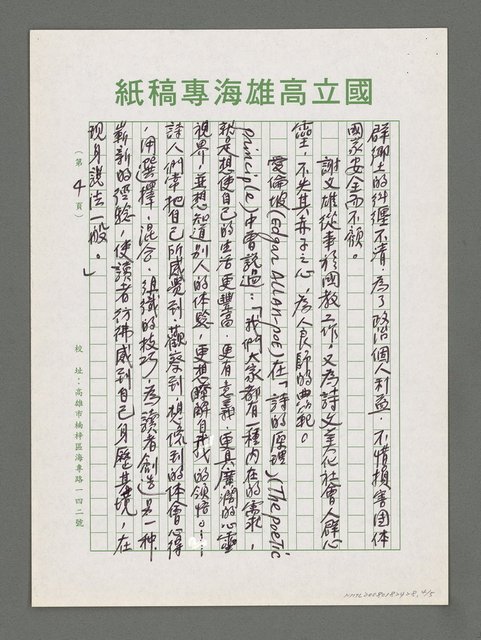 國立高雄海專稿紙
群鄉土的糾纏不清，為了政治個人利益，不惜損害團体
國家安全而不顧。
謝文雄從事於國教工作，又為詩文美化社會人群心
靈，不失其赤子之心，為人良師的典範。
愛倫坡(Edgar ALLAN-POE)在「詩的原理」(The poetic
principle)中曾說過：「我們大家都有一種內在的需求，
就是想使自己的生活更豐富，更有意義，更具廣濶的心靈
視界，並想知道別人的体驗，更想瞭解自我的領悟。……
詩人們常把自己所感覺到，觀察到，想像到的体會心得
，用選擇，混合，組織的技巧，為讀者創造另一种
嶄新的經驗，使讀者彷彿感到自己身歷其境，在
現身說法一般。」
（第 4 頁）
校 址：高雄市楠梓區海專路一四二號
NMTL20080182428, 4/5